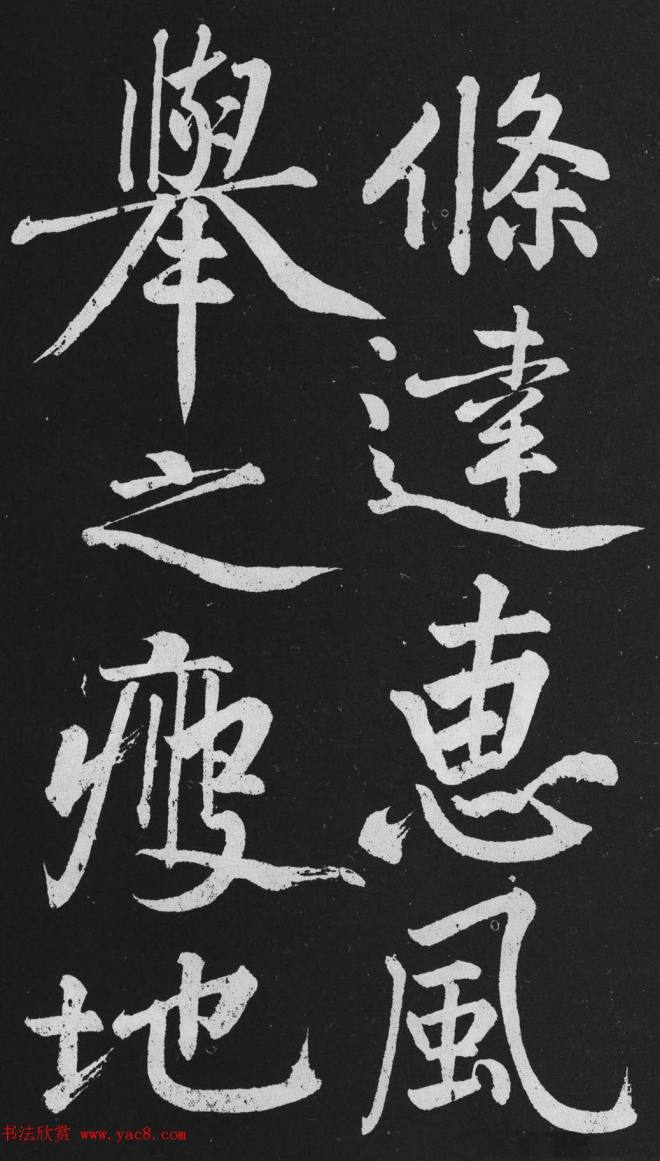 條達惠風
舉之瘦地
书法欣赏 www.yac8.com